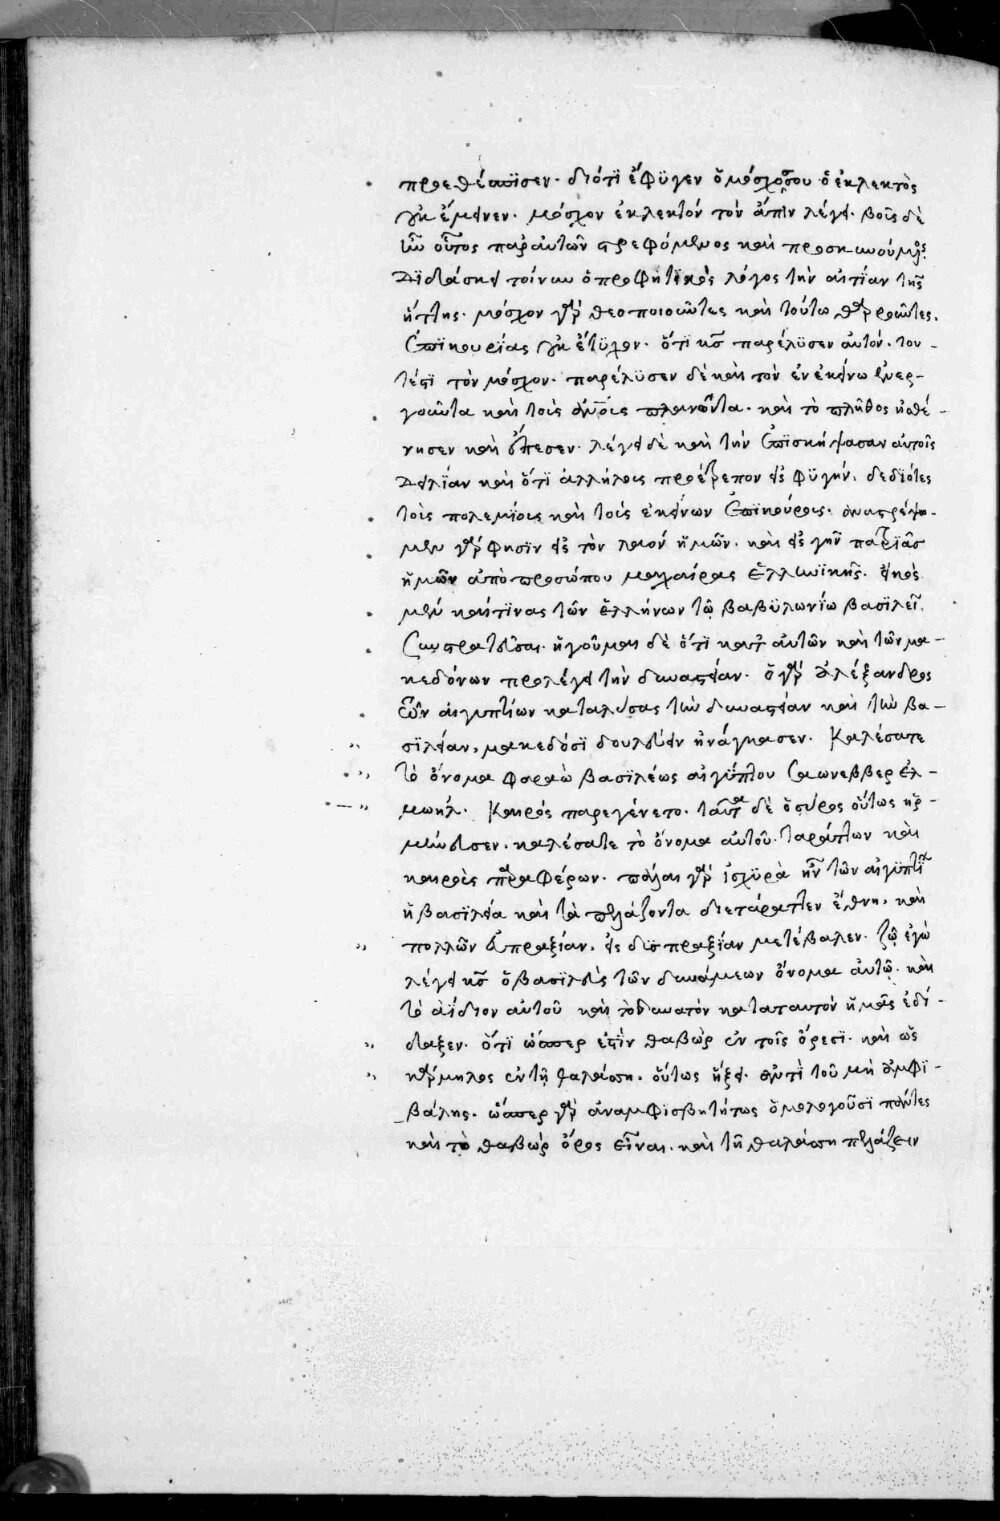 προεθέσπϊσεν· διότϊ ἔφϋγεν ὁ μόσχος σου ὁ ἐκλεκτὸς
οὐκ ἔμεινεν· μόσχον ἐκλεκτόν τὸν ἄπϊν λέγει· βοῦς δὲ
ἦν οὗτος παρ' αὐτῶν τρεφόμενος καὶ προσκυνούμενος·
Διδάσκει τοίνυν ὁ προφητϊκὸς λόγος τὴν αἰτίαν τῆς
ἥττης· μόσχον γὰρ θεοποιοῦντες καὶ τούτω θαρροῦντες,
ἐπϊκουρίας οὐκ ἔτϋχον· ὅτϊ κς παρέλϋσεν αὐτόν· του-
τέστϊ τὸν μόσχον· παρέλϋσεν δὲ καὶ τὸν ἐν ἐκείνω ἐνερ-
γοῦντα καὶ τοὺς ἀνους πλανῶντα· καὶ τὸ πλῆθος ἠσθέ-
νησεν καὶ ἔπεσεν· λέγει δὲ καὶ τὴν ἐπϊσκήψασαν αὐτοῖς
Δειλίαν καὶ ὅτϊ ἀλλήλους προέτρεπον εἰς φϋγήν· δεδϊότες
τοὺς πολεμίους καὶ τοὺς ἐκείνων ἐπϊκούρους· ἀναστρέψω-
μεν γὰρ φησϊν εἰς τὸν λαον ἡμῶν· καὶ εἰς γῆν πατρϊᾶς
ἡμῶν ἀπὸ προσώπου μαχαίρας ἑλληνϊκῆς· εἰκὸς
μὲν καί τϊνας τῶν ἑλλήνων τῶ βαβϋλωνίω βασϊλεῖ
συστρατεῦσαι· ἡγοῦμαι δὲ ὅτϊ κατ' αὐτῶν καὶ τῶν μα-
κεδόνων προλέγει τὴν δυναστείαν· ὁ γὰρ ἀλέξανδρος
τῶν αἰγυπτίων καταλύσας τὴν δυναστείαν καὶ τὴν βα-
σϊλείαν, μακεδόσϊ δουλεύειν ἠνάγκασεν· Καλέσατε
τὸ ὄνομα φαραὼ βασϊλέως αἰγϋπτου σαωνεββερ ἐλ-
μωήλ· Καιρός παρεγένετο· ταῦτα δὲ ὁ σύρος οὕτως ἡρ-
μήνευσεν· καλέσατε τὸ ὄνομα αὐτοῦ· ταράττων καὶ
καιροὺς παραφέρων· πάλαι γὰρ ἰσχϋρὰ ἦν τῶν αἰγϋπτίων
ἡ βασϊλεία καὶ τὰ πελάζοντα διετάραττεν ἔθνη· καὶ
πολλῶν εὐπραξίαν· εἰς δυσπραξίαν μετέβαλεν· ζῶ ἐγὼ
λέγει κς ὁ βασϊλεὺς τῶν δυνάμεων ὄνομα αὐτῶ· καὶ
τὸ ἀΐδιον αὐτοῦ καὶ τὸ δυνατὸν κατα ταυτὸν ἡμᾶς ἐδί-
δαξεν· ὅτϊ ὥσπερ ἐστὶν θαβὼρ ἐν τοῖς ὄρεσϊ· καὶ ὡς
κάρμηλος ἐν τῆ θαλάσση· οὕτως ἥξει· ἀντὶ τοῦ μὴ ἀμφϊ-
βάλης· ὥσπερ γὰρ ἀναμφισβητήτως ὁμολογοῦσϊ πάντες
καὶ τὸ θαβὼρ ὄρος εἶναι· καὶ τῆ θαλάσση πελάζειν